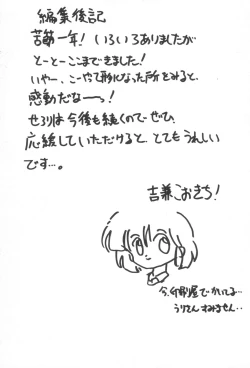 編集後記
苦節一年! いろいろありましたが
とーとーここまできました!
いやー、こーやて形になった所をみると、
感動だなーっ!
せろりは今後も続くのでーぜひ、
応援していただけると、とてもうれしい
です…。
吉兼こおきち!
今、印刷屋でかいてる…
うりさん すみません..